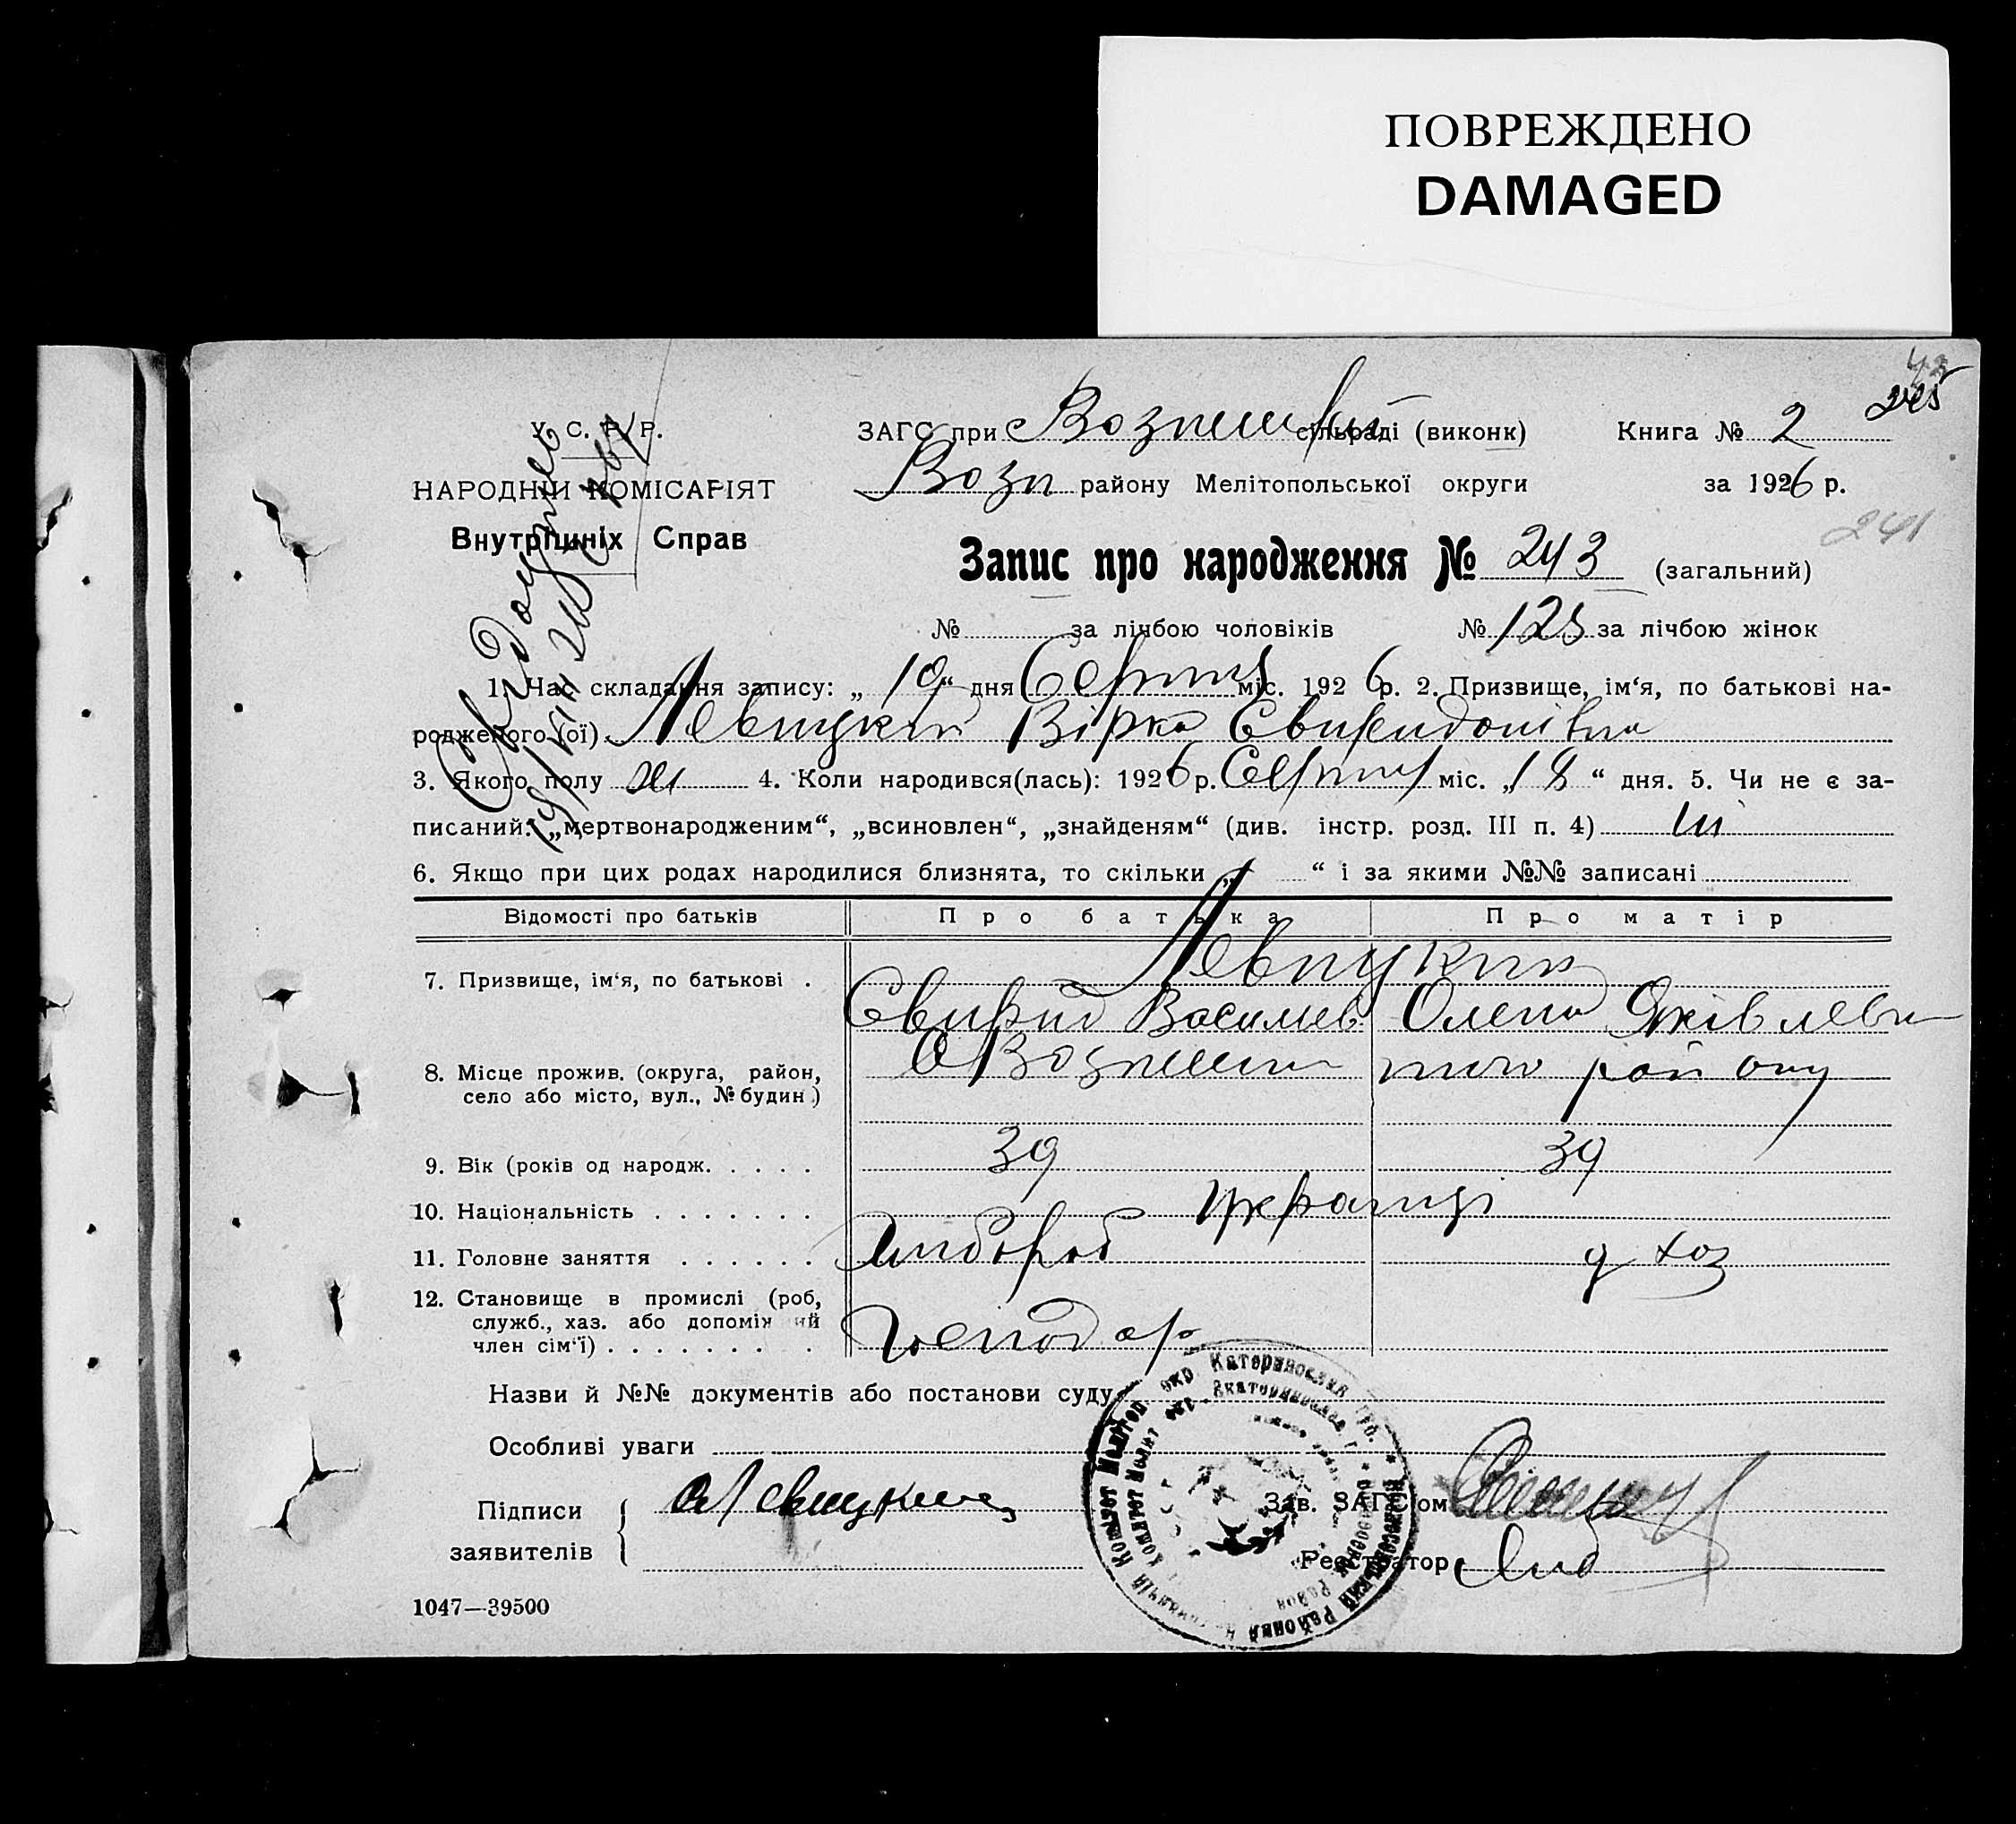 ПОВРЕЖДЕНО
DAMAGED
У. С. Р. Р.
НАРОДНІЙ КОМІСАРІЯТ
Внутрішніх Справ
ЗАГС при сільраді (виконк) Книга № 2
Возн району Мелітопольської округи за 1926 р.
241
Запис про народження № 243 (загальний)
№ за лічбою чоловіків № 125 за лічбою жінок
1. Час складання запису: „19“ дня Серпня міс. 1926 р. 2. Призвище, ім‘я, по батькові на-
родженого (ої) Левицкий Вірка Свиридонівна
3. Якого полу 4. Коли народився(лась): 1926 р. Серпня міс. „18“ дня. 5. Чи не є за-
писаний: „мертвонародженим“, „всиновлен“, „знайденям“ (див. інстр. розд. III п. 4) ні
6. Якщо при цих родах народилися близнята, то скільки „ “ і за якими №№ записані
Відомості про батьків Про батька Про матір
7. Призвище, ім‘я, по батькові . Левицкии
Свирид Василев Олена Яківлевн
8. Місце прожив. (округа, район, село або місто, вул., № будин.) району
9. Вік (років од народж. . . . . 39 39
10. Національність . . . . . . . Українці
11. Головне заняття . . . . . . Хлібороб д хоз
12. Становище в промислі (роб, служб., хаз. або допоміжний член сім‘ї) . . . . . . . . господар
Назви й №№ документів або постанови суду
Особливі уваги
Підписи заявителів
Зав. ЗАГС‘ом
Реєстратор
1047—39500